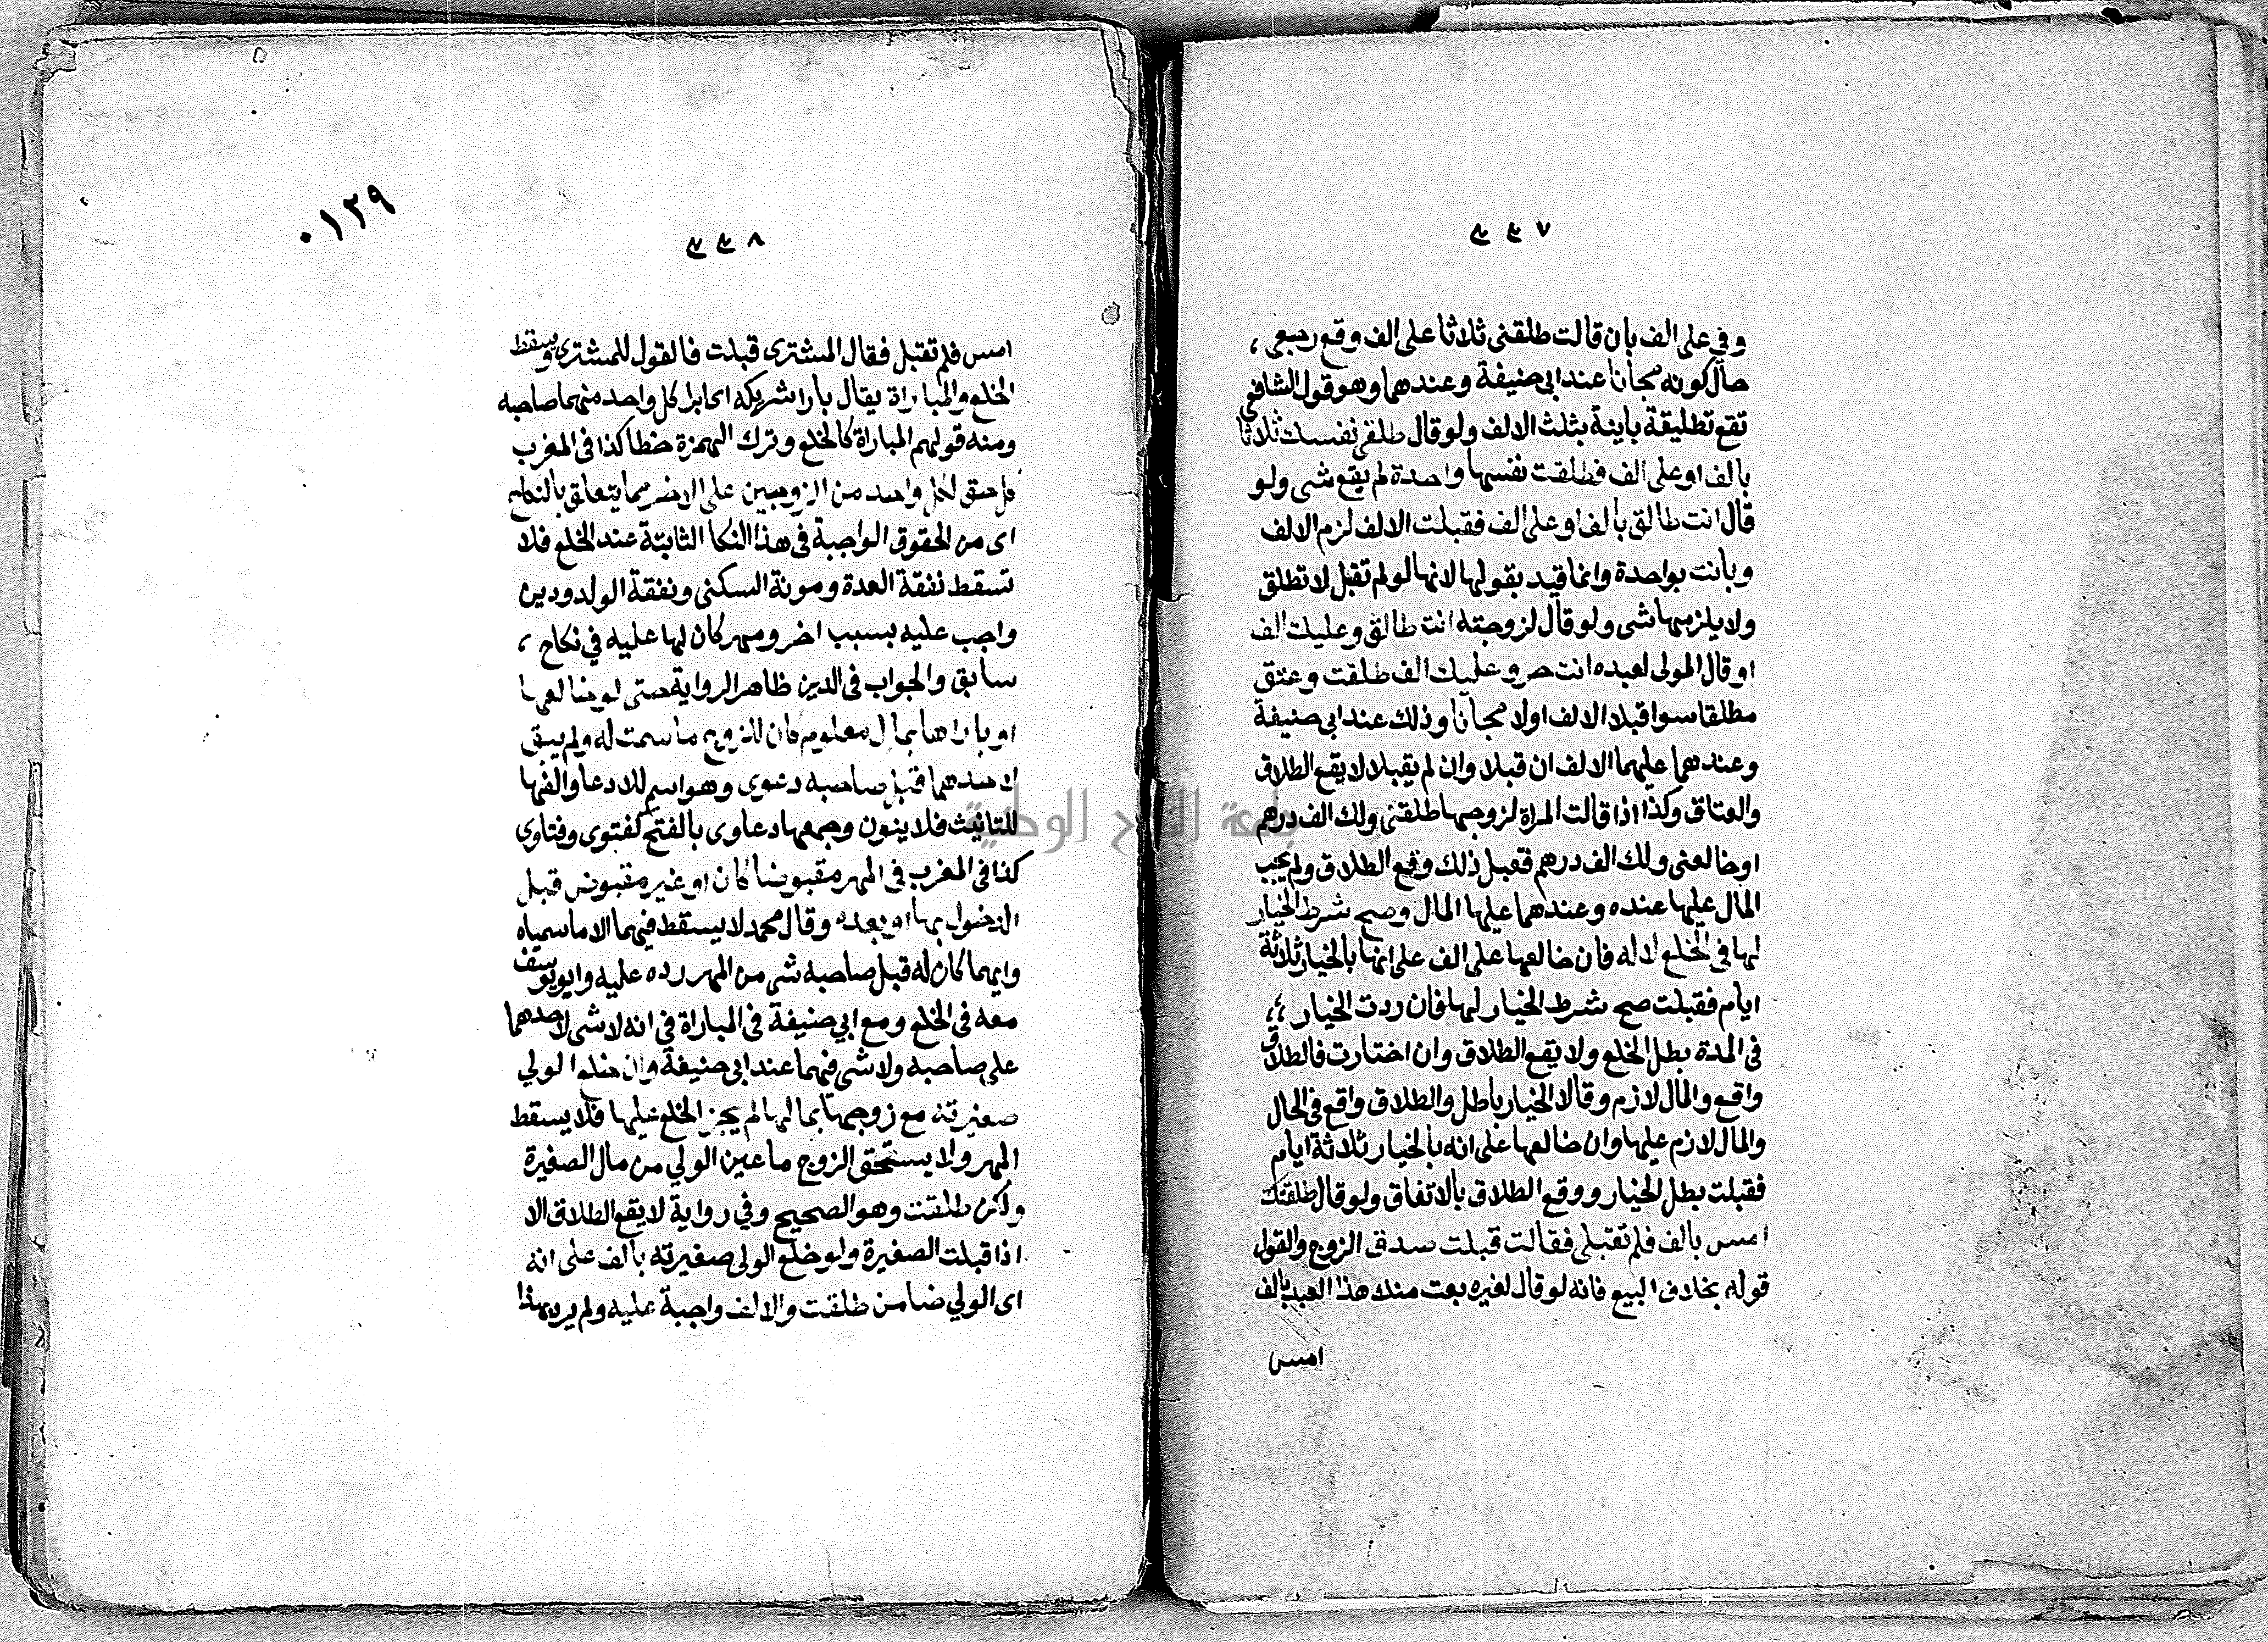 ٤٤٧
وفي على الف بان قالت طلقنى ثلاثا على الف وقع رجعي ،
حال كونه مجانا عند ابي حنيفة وعندهما وهو قول الشافعي
تقع تطليقة باينة بثلث الالف ولو قال طلقى نفسك ثلاثا
بالف او على الف فطلقت نفسها واحدة لم يقع شى ولو
قال انت طالق بالف او على الف فقبلت الالف لزم الالف
وبانت بواحدة وانما قيد بقولها لانها لو لم تقبل لا تطلق
ولا يلزمها شى ولو قال لزوجته انت طالق وعليك الف
او قال المولى لعبده انت حر وعليك الف طلقت وعتق
مطلقا سوا قبلا الالف اولا مجانا وذلك عند ابي حنيفة
وعندهما عليهما الالف ان قبلا وان لم يقبلا لا يقع الطلاق
والعتاق وكذا اذا قالت المراة لزوجها طلقنى ولك الف درهم
او خالعنى ولك الف درهم فقبل ذلك وقع الطلاق ولم يجب
المال عليها عنده وعندهما عليها المال وصح شرط الخيار
لها فى الخلع لا له فان خالعها على الف على انها بالخيار ثلاثة
ايام فقبلت صح شرط الخيار لها فان ردت الخيار ؛؛
فى المدة بطل الخلع ولا يقع الطلاق وان اختارت فالطلاق
واقع والمال لازم وقالا الخيار باطل والطلاق واقع فى الحال
والمال لازم عليها وان خالعها على انه بالخيار ثلاثة ايام
فقبلت بطل الخيار ووقع الطلاق بالاتفاق ولو قال طلقتك
امس بالف فلم تقبلى فقالت قبلت صدق الزوج والقول
قوله بخلاف البيع فانه لو قال لغيره بعت منك هذا العبد بالف
امس
٠١٢٩
٤٤٨
امس فلم تقبل فقال المشترى قبلت فالقول للمشترى ويسقط
الخلع والمباراة يقال بارا شريكه اى ابرا كل واحد منهما صاحبه
ومنه قولهم المباراة كالخلع وترك الهمزة خطا كذا فى المغرب
كل حق لكل واحد من الزوجين على الاخر مما يتعلق بالنكاح
اى من الحقوق الواجبة فى هذا النكا الثابتة عند الخلع فلا
تسقط نفقة العدة ومونة السكنى ونفقة الولد ودين
واجب عليه بسبب اخر ومهر كان لها عليه في نكاح ،
سابق والجواب فى الدين ظاهر الرواية حتى لو خالعها
او باراها بمال معلوم كان للزوج ما سمت له ولم يبق
لاحدهما قبل صاحبه دعوى وهو اسم للادعا والفها
للتانيث فلا ينون وجمعها دعاوى بالفتح كفتوى وفتاوى
كذا فى المغرب فى المهر مقبوضا كان او غير مقبوض قبل
الدخول بها او بعده وقال محمد لا يسقط فيهما الا ما سمياه
وايهما كان له قبل صاحبه شى من المهر رده عليه وابو يوسف
معه فى الخلع ومع ابي حنيفة فى المباراة في انه لا شى لاحدهما
على صاحبه ولا شى فيهما عند ابي حنيفة وان خلع الولي
صغيرته مع زوجها بمالها لم يجز الخلع عليها فلا يسقط
المهر ولا يستحق الزوج ما عين الولي من مال الصغيرة
ولكن طلقت وهو الصحيح وفي رواية لا يقع الطلاق الا
اذا قبلت الصغيرة ولو خلع الولى صغيرته بالف على انه
اى الولي ضامن طلقت والالف واجبة عليه ولم يرد بهذا